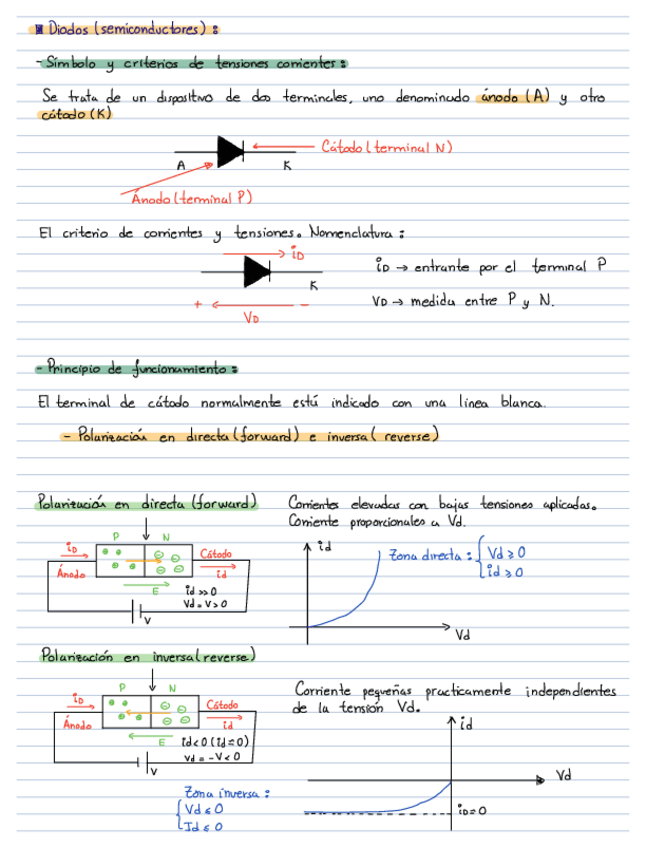 Diodos (semiconductores):
- Símbolo y criterios de tensiones corrientes:
Se trata de un dispositivo de dos terminales, uno denominado ánodo (A) y otro
cátodo (K)
Cátodo (terminal N)
A
K
Ánodo (terminal P)
El criterio de corrientes y tensiones. Nomenclatura:
iD
iD → entrante por el terminal P
K
+
-
VD → medida entre P y N.
VD
- Principio de funcionamiento:
El terminal de cátodo normalmente está indicado con una línea blanca.
- Polarización en directa (forward) e inversa (reverse)
Polarización en directa (forward)
Corrientes elevadas con bajas tensiones aplicadas.
Corriente proporcionales a Vd.
P
N
iD
Cátodo
Ánodo
id
E
id >> 0
Vd = V > 0
V
id
Zona directa:
Vd ≥ 0
id ≥ 0
Vd
Polarización en inversa (reverse)
Corriente pequeñas practicamente independientes
de la tensión Vd.
P
N
iD
Cátodo
Ánodo
id
E
id < 0 (id = 0)
Vd = -V < 0
V
id
Vd
iD = 0
Zona inversa:
Vd ≤ 0
Id ≤ 0